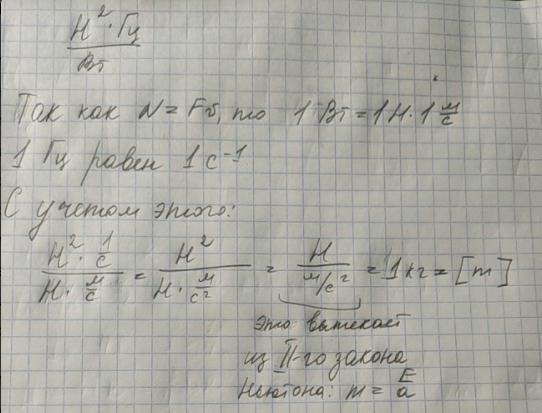 Н²·Гц/Вт
Так как N = Fv, то 1 Вт = 1 Н·1 м/с
1 Гц равен 1 с⁻¹
С учетом этого:
(Н²·1/с)/(Н·м/с) = Н²/(Н·м/с²) = Н/(м/с²) = 1 кг = [m]
Это вытекает
из II-го закона
Ньютона: m = F/a